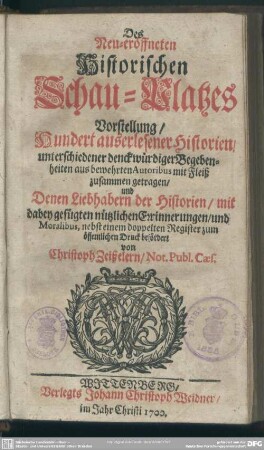 Des
Neu-eröffneten
Historischen
Schau-Platzes
Vorstellung/
Hundert außerlesener Historien/
unterschiedener denckwürdiger Begeben-
heiten aus bewehrten Autoribus mit Fleiß
zusammen getragen/
und
Denen Liebhabern der Historien/ mit
dabey gefügten nützlichen Erinnerungen/ und
Moralibus, nebst einem doppelten Register zum
öffentlichen Druck befördert
von
Christoph Zeißelern/ Not. Publ. Cæs.
WITTENBERG/
Verlegts Johann Christoph Weidner/
im Jahr Christi 1700.